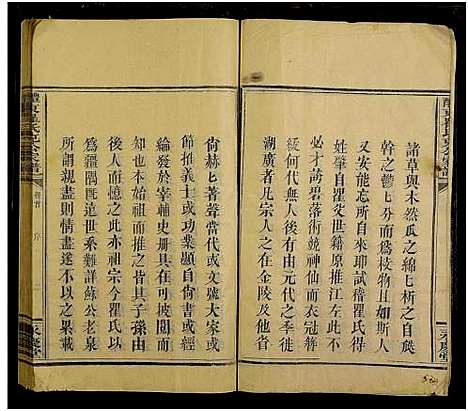 諸草與木然瓜之綿匕析之自葭
幹之鬱匕分而為枝物且如斯人
又安能忘所自來耶試觀瞿氏得
姓爰父世籍原推江左此不
必才誇碧落術競神仙而衣冠雒
緩何代無人後有由元代之季徙
湖廣者凡宗人之在金陵及他省
尚赫匕著聲當代或文號大家或
節推義士或功業顯自尚書或經
綸發於宰輔史册具在可披閱而
知也本始祖而推之皆其子孫由
後人而憶之此亦祖宗今瞿氏以
為疆隅既遠世系難詳蘇公老泉
所謂親盡則情盡遂不以之累載